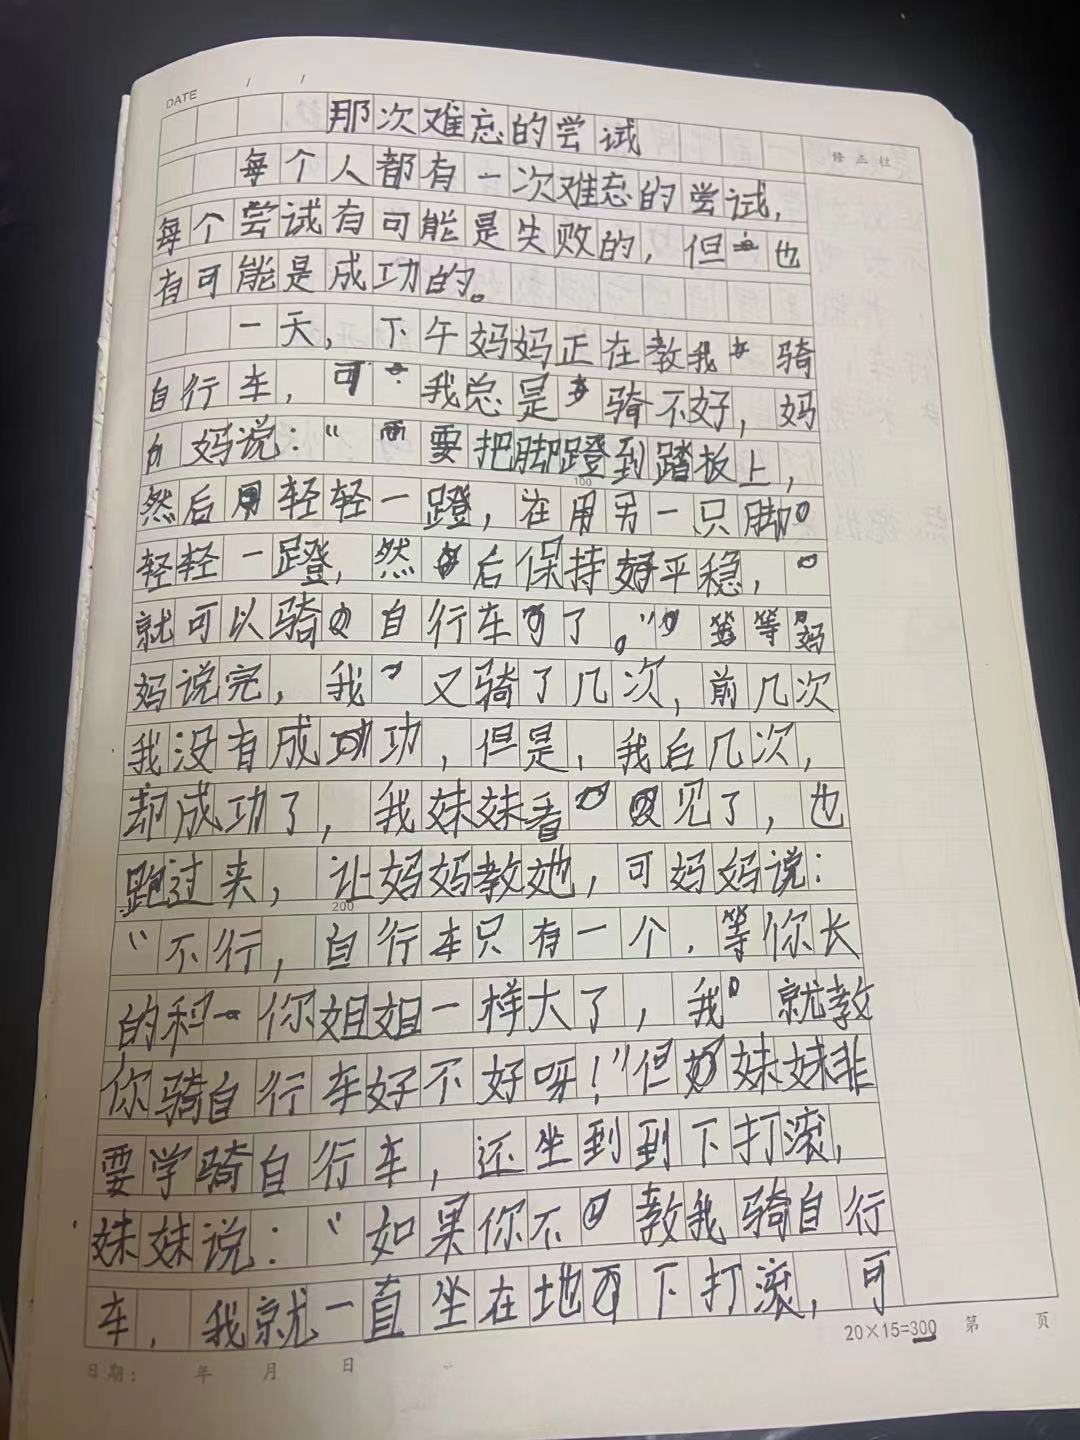 DATE / /
那次难忘的尝试
修正栏
每个人都有一次难忘的尝试,
每个尝试有可能是失败的,但也
有可能是成功的。
一天,下午妈妈正在教我骑
自行车,可我总是骑不好,妈
妈说:“要把脚蹬到踏板上,
100
然后轻轻一蹬,在用另一只脚
轻轻一蹬,然后保持好平稳,
就可以骑自行车了。”等妈
妈说完,我又骑了几次,前几次
我没有成功,但是,我后几次,
却成功了,我妹妹看见了,也
跑过来,让妈妈教她,可妈妈说:
200
“不行,自行车只有一个.等你长
的和你姐姐一样大了,我就教
你骑自行车好不好呀!”但妹妹非
要学骑自行车,还坐到到下打滚,
妹妹说:“如果你不教我骑自行
车,我就一直坐在地下打滚,可
20×15=300 第 页
日期: 年 月 日